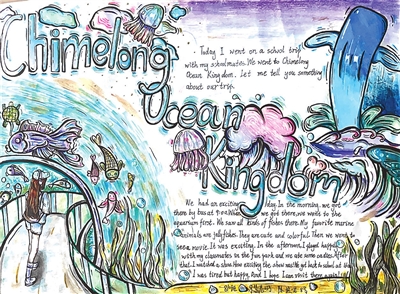 Chimelong
Ocean
Kingdom
Today I went on a school trip
with my schoolmates. We went to Chimelong
Ocean Kingdom. Let me tell you something
about our trip.
We had an exciting day. In the morning, we got
there by bus at we got there, we went to the
aquarium first. We saw all kinds of fishes there. My favorite marine
animals are jellyfishes. They are cute and colorful. Then we went to
see a movie. It was exciting. In the afternoon, I played happily
with my classmates in the fun park and we ate some candies. After
that, I watched a show. How exciting the show was! We got back to school at
I was tired but happy. And I hope I can visit there again!